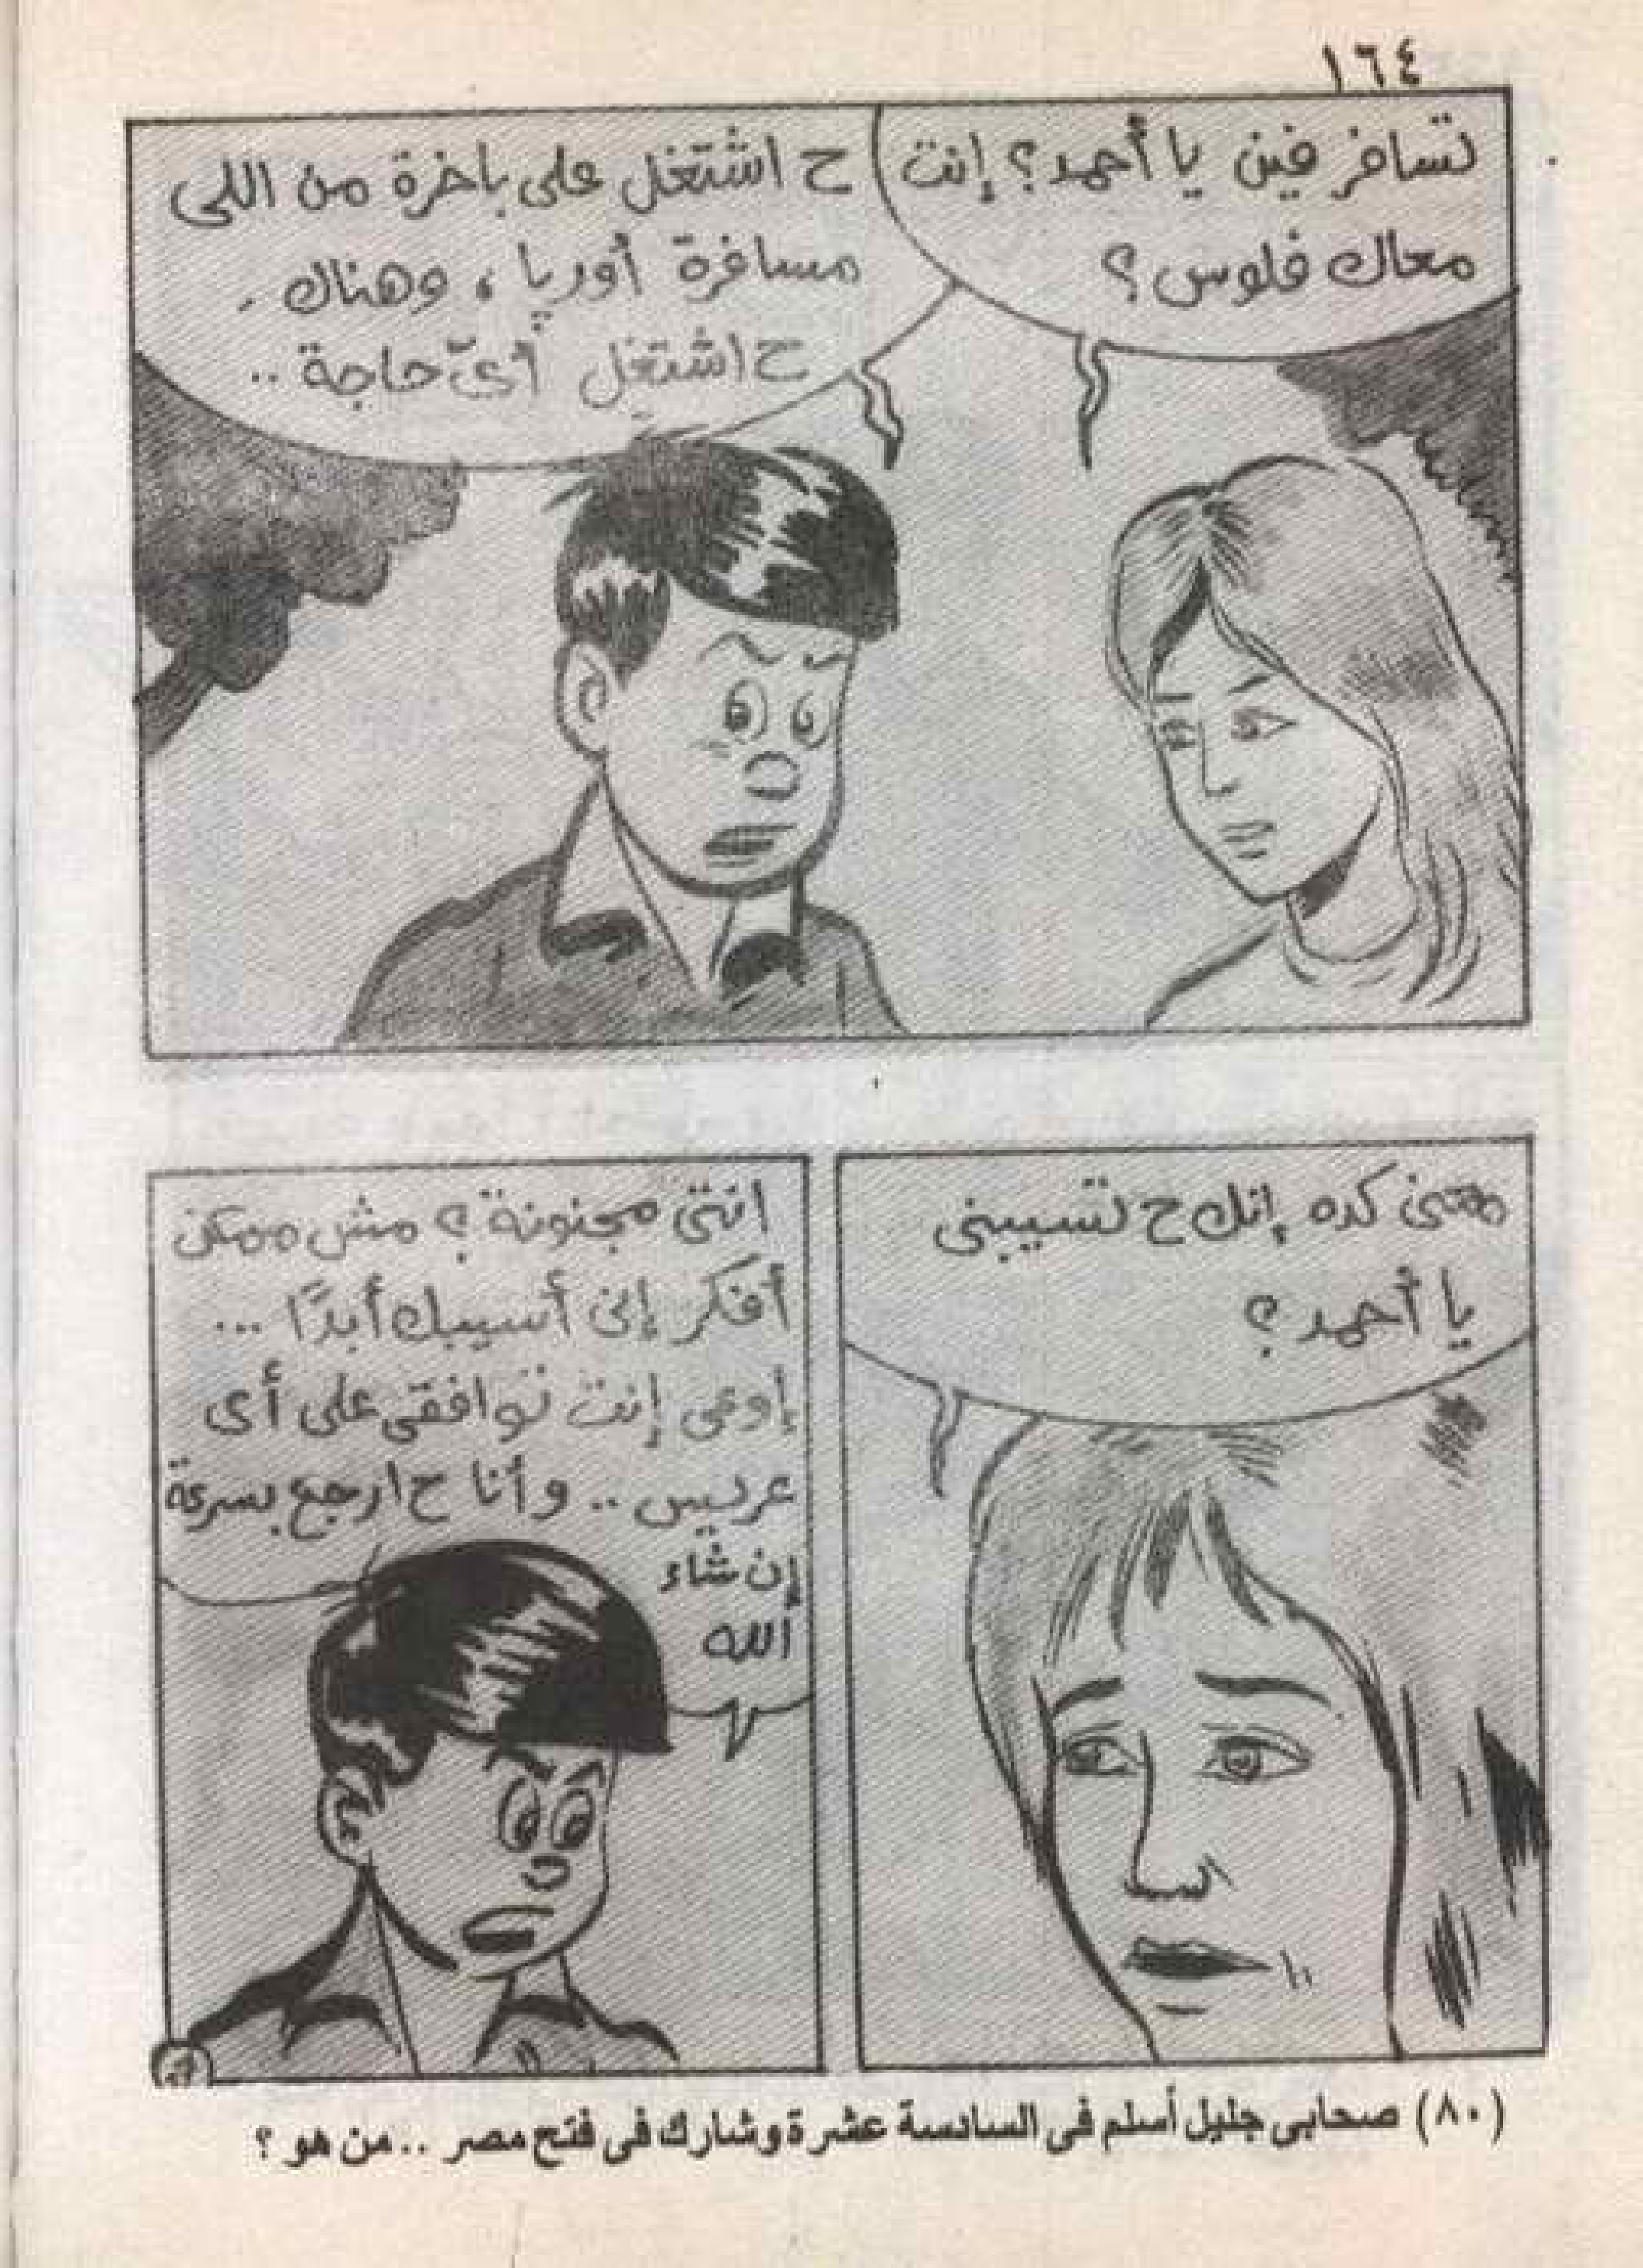 ١٦٤
تسافر فين يا أحمد؟ إنت
معاك فلوس؟
ح اشتغل على باخرة من اللى
مسافرة أوربا، وهناك
ح اشتغل أىّ حاجة ..
معنى كده إنك ح تسيبنى
يا أحمد؟
انتى مجنونة؟ مش ممكن
أفكر إنى أسيبك أبدًا ...
إوعى إنت توافقى على أى
عريس .. وأنا ح ارجع بسرعة
إن شاء
الله
(٨٠) صحابى جليل أسلم فى السادسة عشرة وشارك فى فتح مصر .. من هو ؟